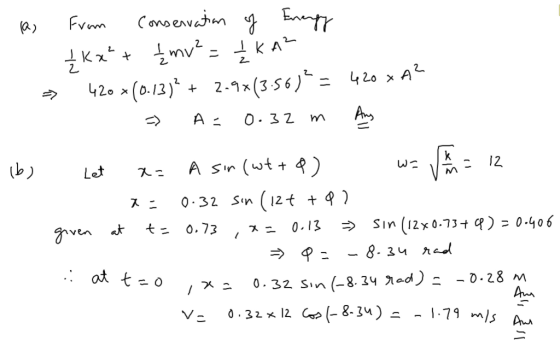 (a) From Conservation of Energy
½ K x² + ½ mv² = ½ K A²
⇒ 420 × (0.13)² + 2.9 × (3.56)² = 420 × A²
⇒ A = 0.32 m Ans
(b) Let x = A sin (ωt + φ) ω = √(k/m) = 12
x = 0.32 sin (12t + φ)
given at t = 0.73, x = 0.13 ⇒ sin (12×0.73 + φ) = 0.406
⇒ φ = - 8.34 rad
∴ at t = 0, x = 0.32 sin (-8.34 rad) = -0.28 m Ans
V = 0.32 × 12 Cos (-8.34) = - 1.79 m/s Ans